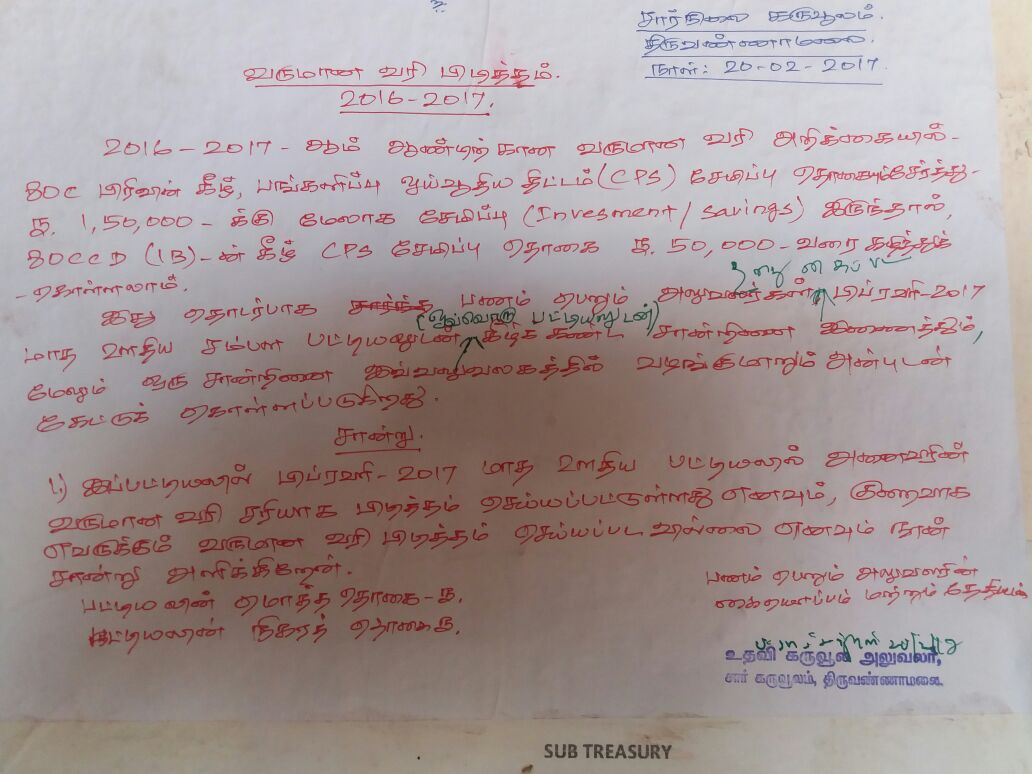 சார்நிலை கருவூலம்.
திருவண்ணாமலை.
நாள்: 20-02-2017.
வருமான வரி பிடித்தம்.
2016-2017.
2016-2017-ஆம் ஆண்டிற்கான வருமான வரி அறிக்கையில்-
80C பிரிவின் கீழ், பங்களிப்பு ஓய்வூதிய திட்டம் (CPS) சேமிப்பு தொகையும்சேர்த்து-
ரூ. 1,50,000-க்கு மேலாக சேமிப்பு (Invesment/savings) இருந்தால்,
80CCD (1B)-ன் கீழ் CPS சேமிப்பு தொகை ரூ. 50,000-வரை கழித்துக்
-கொள்ளலாம்.
இது தொடர்பாக பணம் பெறும் அலுவலர்கள் பிப்ரவரி-2017
(ஒவ்வொரு பட்டியலுடன்)
மாத ஊதிய சம்பள பட்டியலுடன் கீழ்க் கண்ட சான்றினை இணைத்தும்,
மேலும் ஒரு சான்றினை இவ்வலுவலகத்தில் வழங்குமாறும் அன்புடன்
கேட்டுக் கொள்ளப்படுகிறது.
சான்று.
1.) இப்பட்டியலில் பிப்ரவரி-2017 மாத ஊதிய பட்டியலில் அனைவரின்
வருமான வரி சரியாக பிடித்தம் செய்யப்பட்டுள்ளது எனவும், குறைவாக
எவருக்கும் வருமான வரி பிடித்தம் செய்யப்படவில்லை எனவும் நான்
சான்று அளிக்கிறேன்.
பட்டியலின் மொத்த தொகை-ரூ.
பட்டியலின் நிகரத் தொகை ரூ.
பணம் பெறும் அலுவலரின்
கையொப்பம் மற்றும் தேதியும்
உதவி கருவூல அலுவலர்,
சார் கருவூலம், திருவண்ணாமலை.
SUB TREASURY